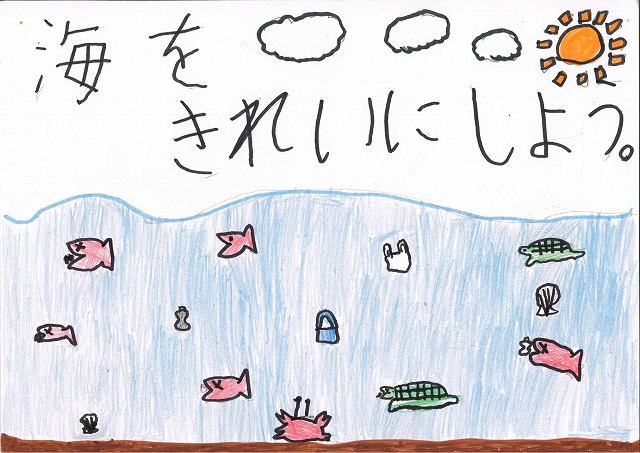 海を
きれいにしよう。